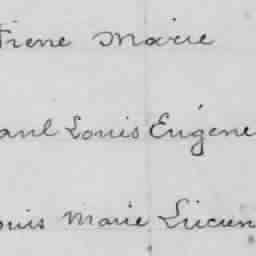 Irene Marie
Paul Louis Eugène
Louis Marie Lucien